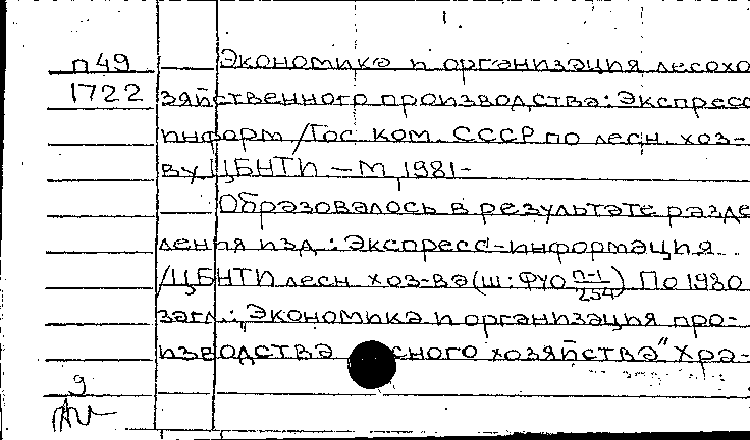 п49
1722
Экономика и организация лесохо
зяйственного производства: Экспресс
информ /Гос ком. СССР по лесн. хоз-
ву, ЦБНТИ – М, 1981-
Образовалось в результате разде
ления изд.: Экспресс-информация
/ЦБНТИ лесн хоз-ва (ш: ФУО п-1/254) По 1980
загл.: „Экономика и организация про-
изводства сного хозяйства" Хра-
9